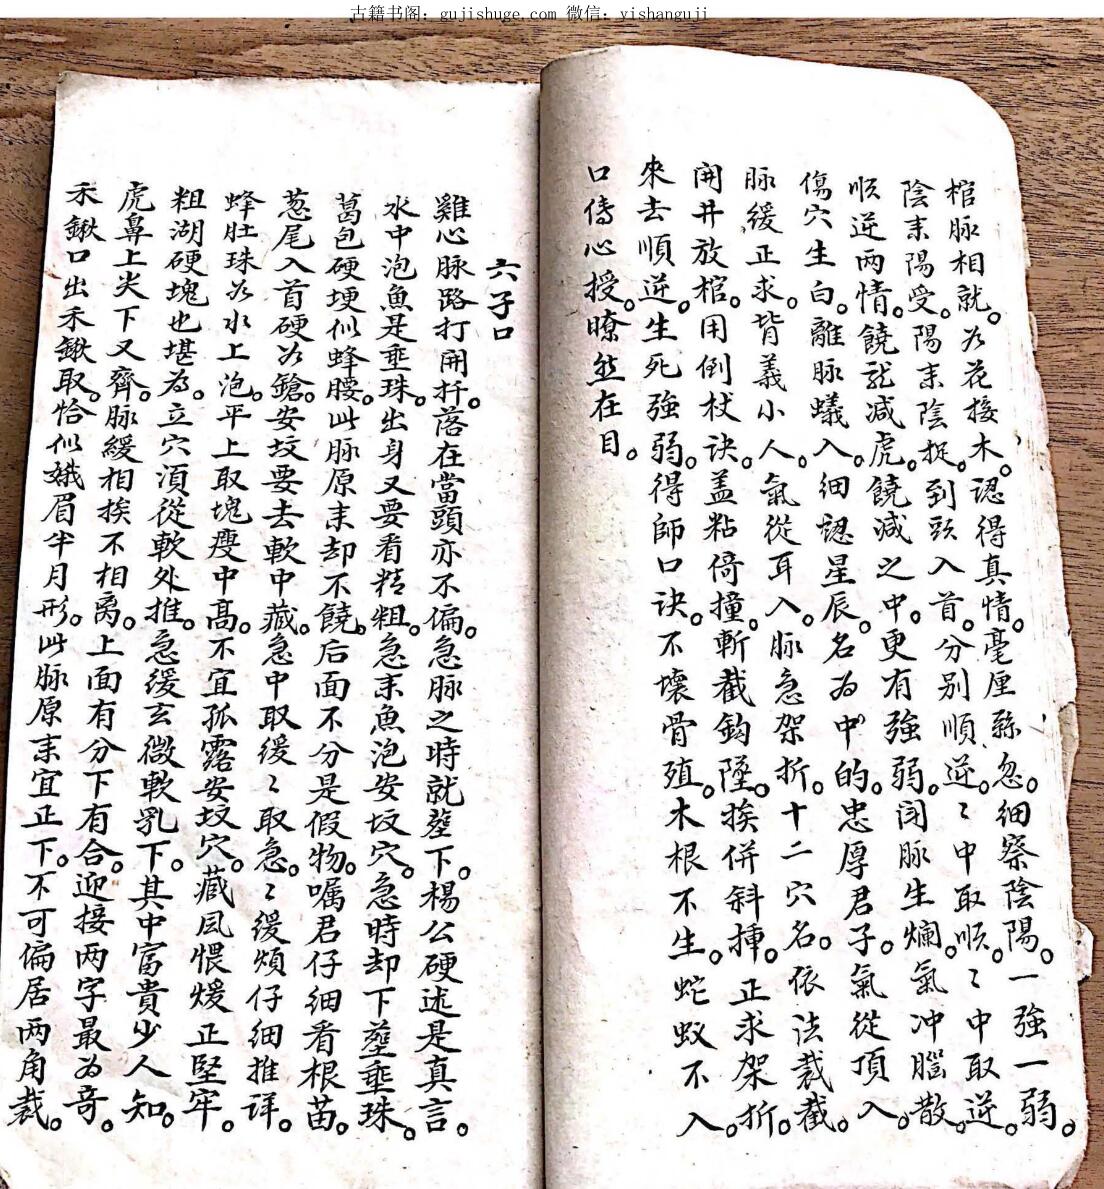 古籍书阁：gujishuge.com 微信：yishanguji
棺脉相就。为花接木。認得真情。毫厘繇忽。細察陰陽。一強一弱。
陰来陽受。陽来陰捉。到頭入首。分别順逆。〻中取順。〻中取逆。
順逆两情。饒龙减虎。饒减之中。更有強弱。闭脉生爛。氣冲腦散。
傷穴生白。離脉蟻入。細認星辰。名为中的。忠厚君子。氣從頂入。
脉緩正求。背義小人。氣從耳入。脉急架折。十二穴名。依法裁截。
開井放棺。用倒杖诀。盖粘倚撞。斬截鈎墜。挨併斜揷。正求架折。
來去順逆。生死強弱。得師口诀。不壞骨殖。木根不生。蛇蚁不入。
口傳心授。瞭然在目。
六子口
雞心脉路打開扦。落在當頭亦不偏。急脉之時就塟下。楊公硬述是真言。
水中泡魚是垂珠。出身又要看精粗。急来魚泡安坟穴。急時却下塟垂珠。
葛包硬埂似蜂腰。此脉原来却不饒。后面不分是假物。嘱君仔細看根苗。
葱尾入首硬为鎗。安坟要去軟中藏。急中取缓〻取急。〻緩煩仔細推详。
蜂肚珠为水上泡。平上取塊瘦中髙。不宜孤露安坟穴。藏风偎煖正堅牢。
粗湖硬塊也堪为。立穴湏從軟外推。急缓玄微軟乳下。其中富貴少人知。
虎鼻上尖下又齊。脉緩相挨不相离。上面有分下有合。迎接两字最为竒。
禾鍬口出禾鍬取。恰似娥眉半月形。此脉原来宜正下。不可偏居两角裁。